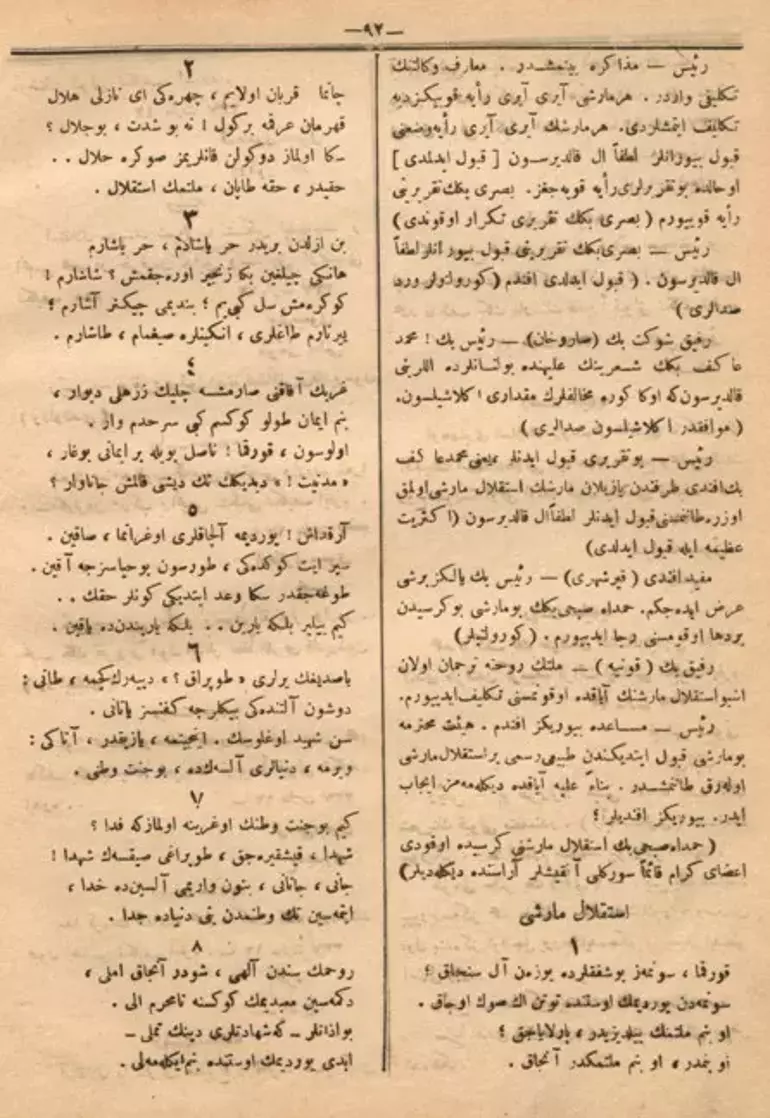 —٩٢—
رئيس — مذاكره بيتمشدر . معارف وكالتنك
تكليفى واردر . هر مارشى آيرى آيرى رأيه قويبكزديه
تكليف ايتمشلردى. هر مارشك آيرى آيرى رأيه وضعنى
قبول بيورانلر لطفاً ال قالديرسون [ قبول ايدلمدى ]
او حالده بو تقريرلرى رأيه قويه جغز. بصرى بكك تقريرينى
رأيه قويييورم ( بصرى بكك تقريرى تكرار اوقوندى )
رئيس — بصرى بكك تقريرينى قبول بيورانلر لطفاً
ال قالديرسون . ( قبول ايدلدى افندم ) ( كورولتولر ورد
صدالرى )
رفيق شوكت بك (صاروخان) — رئيس بك ! محمد
عا كف بكك شعرينك عليهنده بولنانلرده اللرينى
قالديرسون كه اوكا كوره مخالفلرك مقدارى اكلاشيلسون.
( موافقدر اكلاشيلسون صدالرى )
رئيس — بو تقريرى قبول ايدنلر ، يعنى محمد عا كف
بك افندى طرفندن يازيلان مارشك استقلال مارشى اولمق
اوزره طاننمسنى قبول ايدنلر لطفاً ال قالديرسون (اكثريت
عظيمه ايله قبول ايدلدى)
مفيد افندى (قيرشهرى) — رئيس بك يالكز برشى
عرض ايده جكم. حمدالله صبحى بكك بو مارشى بو كرسيدن
بردها اوقومسنى رجا ايدييورم . ( كورولتيلر )
رفيق بك ( قونيه ) — ملتك روحنه ترجمان اولان
اشبو استقلال مارشنك آياقده اوقونمسنى تكليف ايدييورم.
رئيس — مساعده بيوريكز افندم . هيئت محترمه
بو مارشى قبول ايتديكندن طبيعى رسمى بر استقلال مارشى
اوله رق طانمشدر . بناءً عليه آياقده ديكله مه مز ايجاب
ايدر. بيوريكز افنديلر !
( حمدالله صبحى بك استقلال مارشنى كرسيده اوقودى
اعضاى كرام قائماً سوركلى آلقيشلر آراسنده ديكله ديلر)
استقلال مارشى
١
قورقما ، سونمه ز بو شفقلرده يوزه ن آل سنجاق ؛
سونمه دن يورديمك اوستنده توتن اك صوك اوجاق .
او بنم ملتمك ييلديزيدر ، پارلاياجق ؛
او بنمدر ، او بنم ملتمكدر آنجاق .
٢
چاتما قربان اولايم ، چهره كى اى نازلى هلال
قهرمان عرقمه بر كول ! نه بو شدت ، بو جلال ؟
سكا اولماز دوكولن قانلريمز صوكره حلال . .
حقيدر ، حقه طاپان ، ملتمك استقلال .
٣
بن ازلدن بريدر حر ياشادم ، حر ياشارم
هانكى چيلغين بكا زنجير اوره جقمش ؟ شاشارم !
كوكره مش سل كبى يم ؛ بنديمى چيكنر آشارم ؛
ييرتارم طاغلرى ، انكينلره صيغمام ، طاشارم .
٤
غربك آفاقنى صارمشسه چليك زرهلى ديوار ،
بنم ايمان طولو كوكسم كبى سرحدم وار .
اولوسون ، قورقما ! ناصل بويله بر ايمانى بوغار ،
« مدنيت ! » ديديكك تك ديشى قالمش جاناوار ؟
٥
آرقداش ! يورديمه آلچاقلرى اوغراتما ، صاقين .
سپر ايت كوكده كى ، طورسون بو حياسزجه آقين .
طوغه جقدر سكا وعد ايتديكى كونلر حقك . .
كيم بيلير بلكه يارين . . بلكه ياريندن ده ياقين .
٦
باصديغك يرلرى « طوپراق ؟ » دييه رك كچمه ، طانى :
دوشون آلتنده كى بيكلرجه كفنسز ياتانى .
سن شهيد اوغلوسك . اينجيتمه ، يازيقدر ، آتاكى :
ويرمه ، دنيالرى آلسه ك ده ، بو جنت وطنى .
٧
كيم بو جنت وطنك اوغرينه اولمازكه فدا ؟
شهدا ، فيشقيره جق ، طوپراغى صيقسه ك شهدا !
جانى ، جانانى ، بتون واريمى آلسين ده خدا ،
ايتمه سين تك وطنمدن بنى دنياده جدا .
٨
روحمك سندن آلهى ، شودر آنجاق املى ،
دكمه سين معبديمك كوكسنه نامحرم الى .
بو اذانلر — كه شهادتلرى دينك تملى —
ابدى يورديمك اوستنده بنم ايكله مه لى .